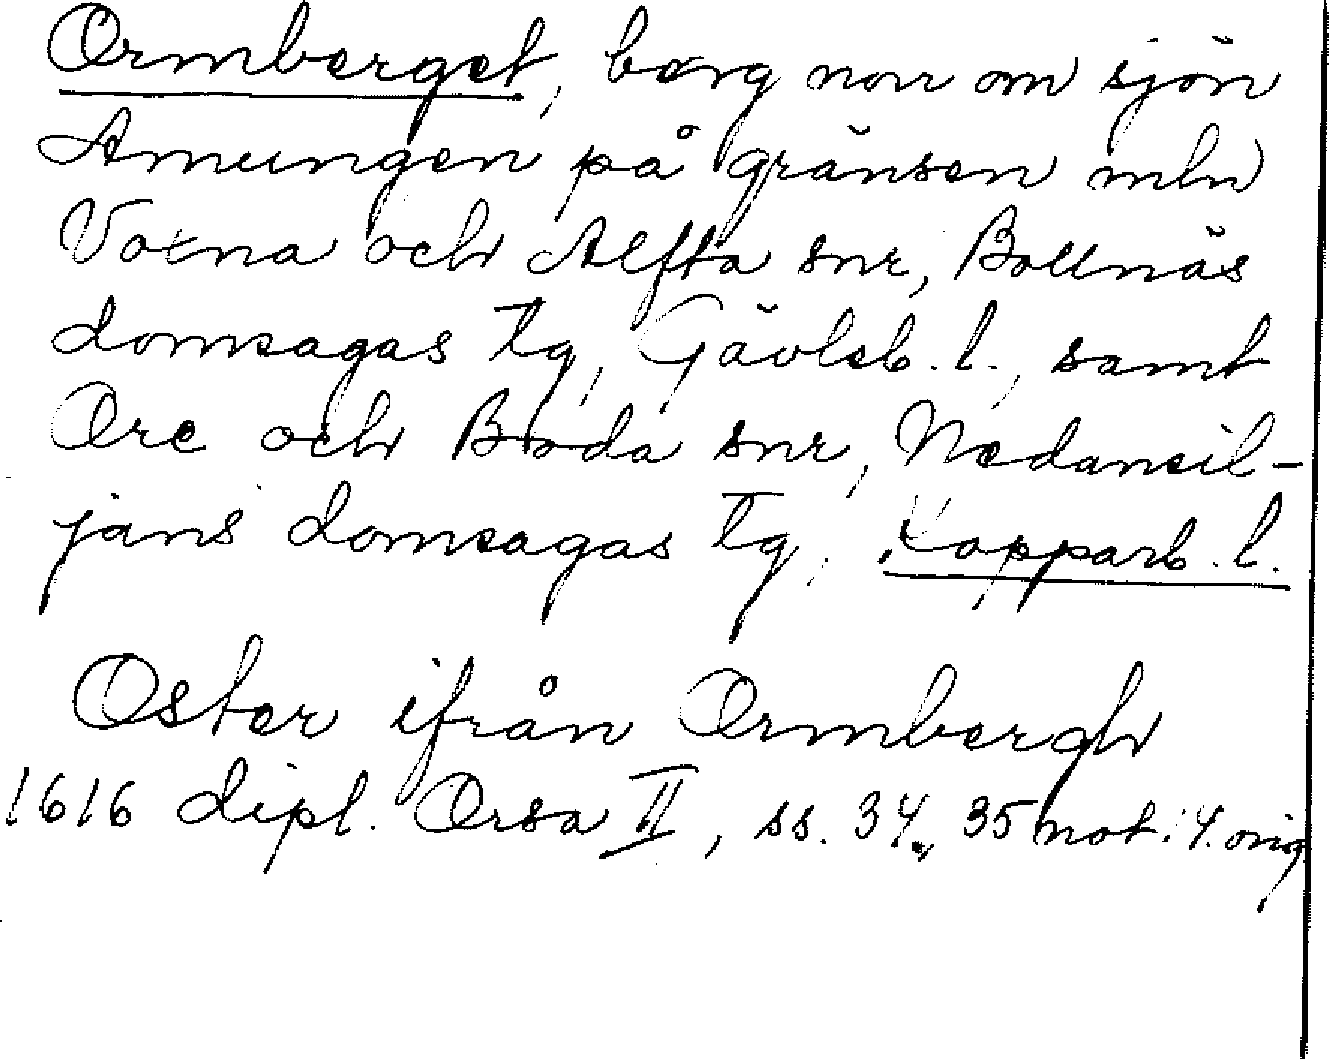 Ormberget, berg norr om sjön
Amungen på gränsen mln
Voxna och Alfta snr, Bollnäs
domsagas tg, Gävleb. l., samt
Ore och Boda snr, Nedansil-
jans domsagas tg, Kopparb. l.
Oster ifrån Ormbergh
1616 dipl. Orsa II, ss. 34, 35 not. 4. orig